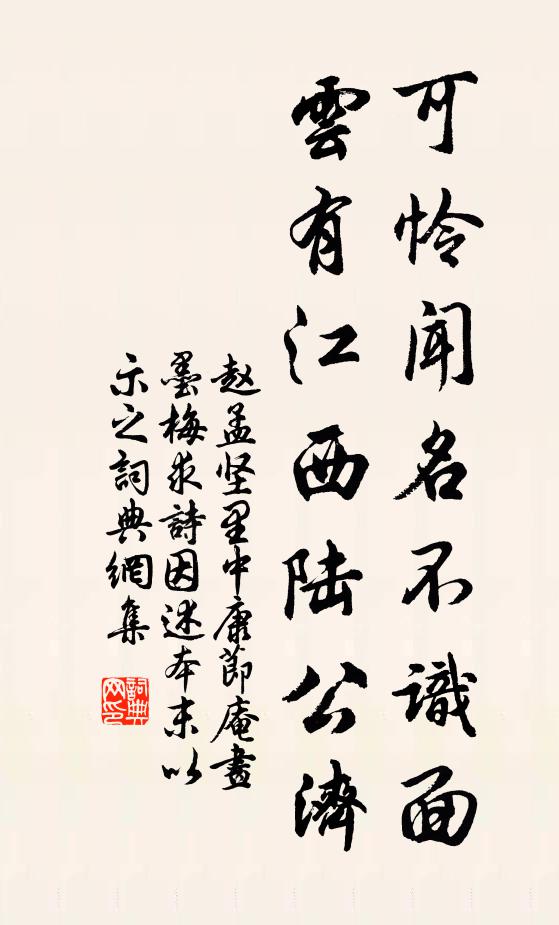 可怜闻名不識面
雲有江西陆公濟
赵孟坚里中康節庵畫
墨梅求詩因述本末以
示之詞典網集
詞典
网印